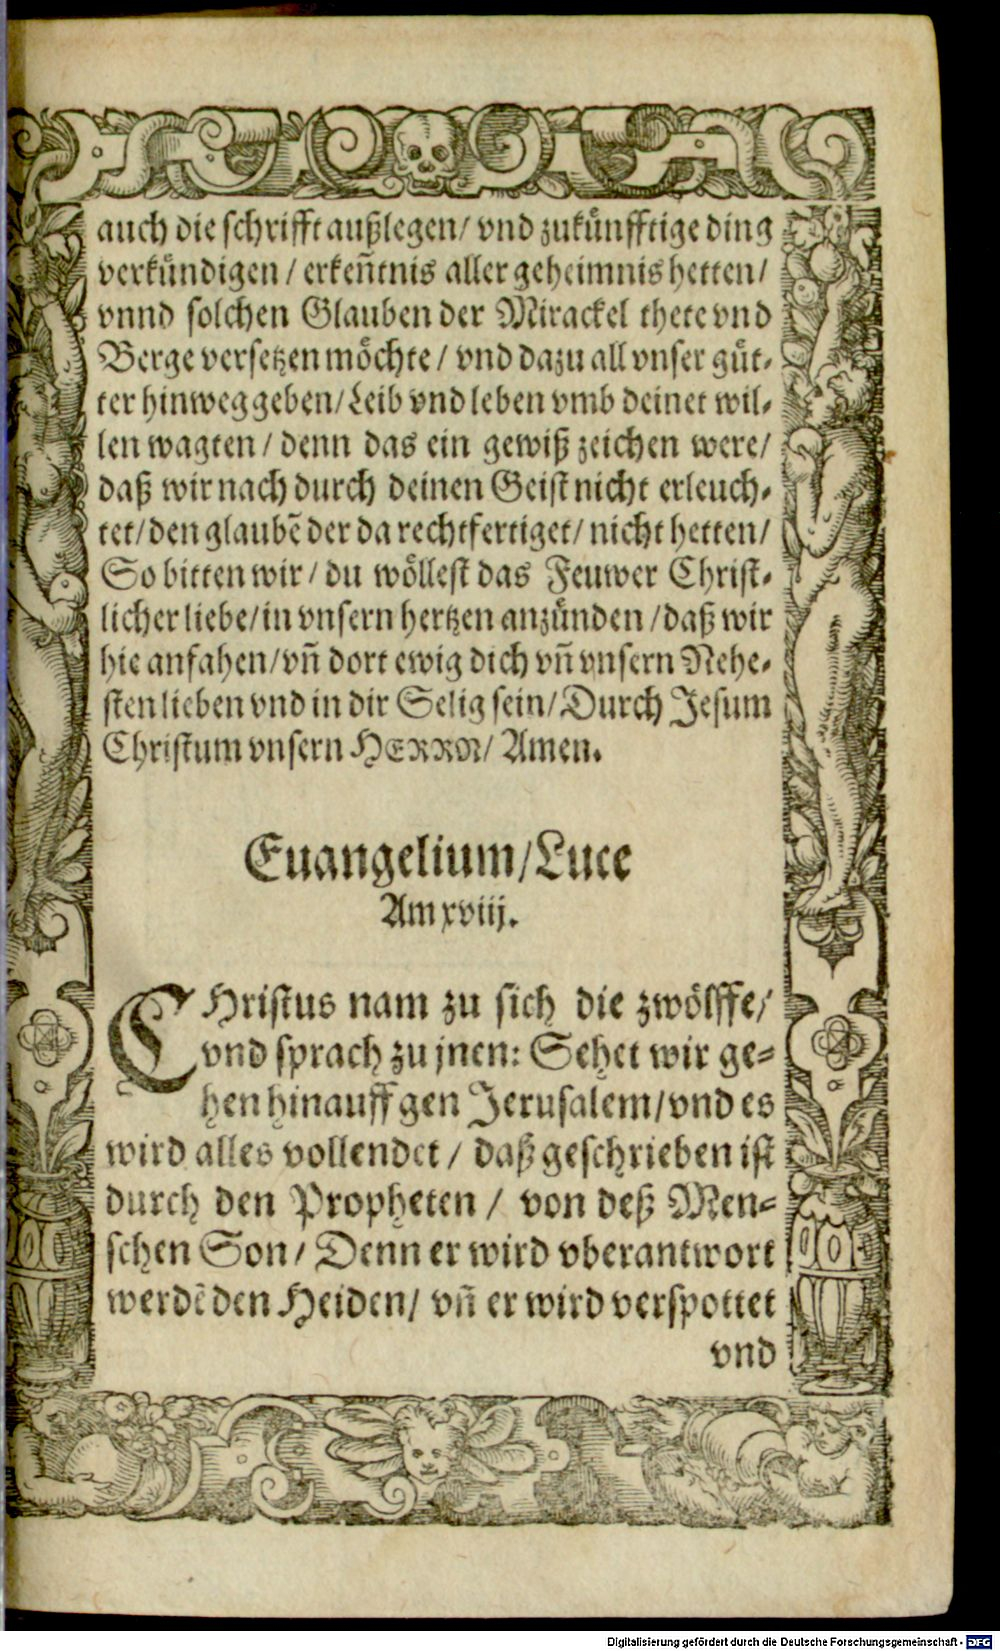 auch die schrifft außlegen/ vnd zukünfftige ding
verkündigen / erkeñtnis aller geheimnis hetten/
vnnd solchen Glauben der Mirackel thete vnd
Berge versetzen möchte / vnd dazu all vnser güt-
ter hinweg geben/ Leib vnd leben vmb deinet wil-
len wagten / denn das ein gewiß zeichen were/
daß wir nach durch deinen Geist nicht erleuch-
tet/ den glaubẽ der da rechtfertiget/ nicht hetten/
So bitten wir / du wöllest das Feuwer Christ-
licher liebe/ in vnsern hertzen anzünden / daß wir
hie anfahen/ vñ dort ewig dich vñ vnsern Nehe-
sten lieben vnd in dir Selig sein/ Durch Jesum
Christum vnsern HERRN/ Amen.
Euangelium/ Luce
Am xviij.
CHristus nam zu sich die zwölffe/
vnd sprach zu jnen: Sehet wir ge-
hen hinauff gen Jerusalem/ vnd es
wird alles vollendet / daß geschrieben ist
durch den Propheten / von deß Men-
schen Son/ Denn er wird vberantwort
werdẽ den Heiden/ vñ er wird verspottet
vnd
Digitalisierung gefördert durch die Deutsche Forschungsgemeinschaft - DFG